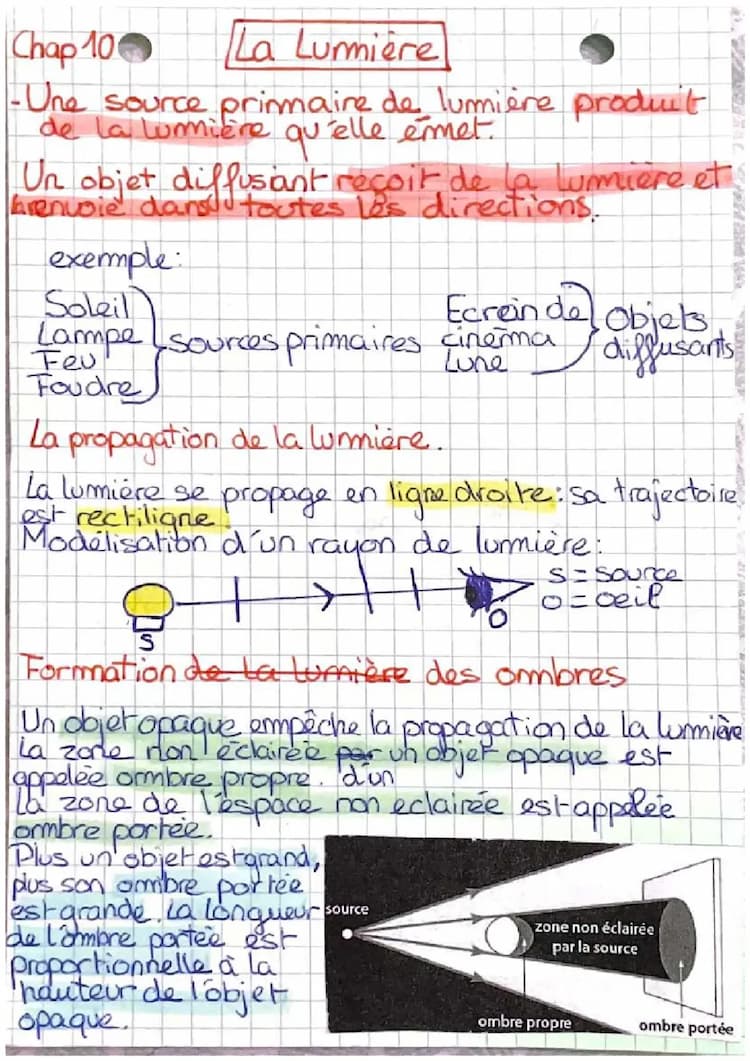 Chap 10
La Lumière
- Une source primaire de lumière produit
de la lumière qu'elle émet.
Un objet diffusant reçoit de la lumière et
la renvoie dans toutes les directions.
exemple:
Soleil
Lampe
Feu
Foudre
sources primaires
Ecrein de
cinéma
Lune
Objets
diffusants
La propagation de la lumière.
La lumière se propage en ligne droite : sa trajectoire
est rectiligne.
Modélisation d'un rayon de lumière :
S = source
O = oeil
S
O
Formation de la lumière des ombres
Un objet opaque empêche la propagation de la lumière
La zone non éclairée par un objet opaque est
appelée ombre propre. d'un
La zone de l'espace non eclairée est appelée
ombre portée.
Plus un objet est grand,
plus son ombre portée
est grande. La longueur
de l'ombre portée est
proportionnelle à la
hauteur de l'objet
opaque.
source
zone non éclairée
par la source
ombre propre
ombre portée